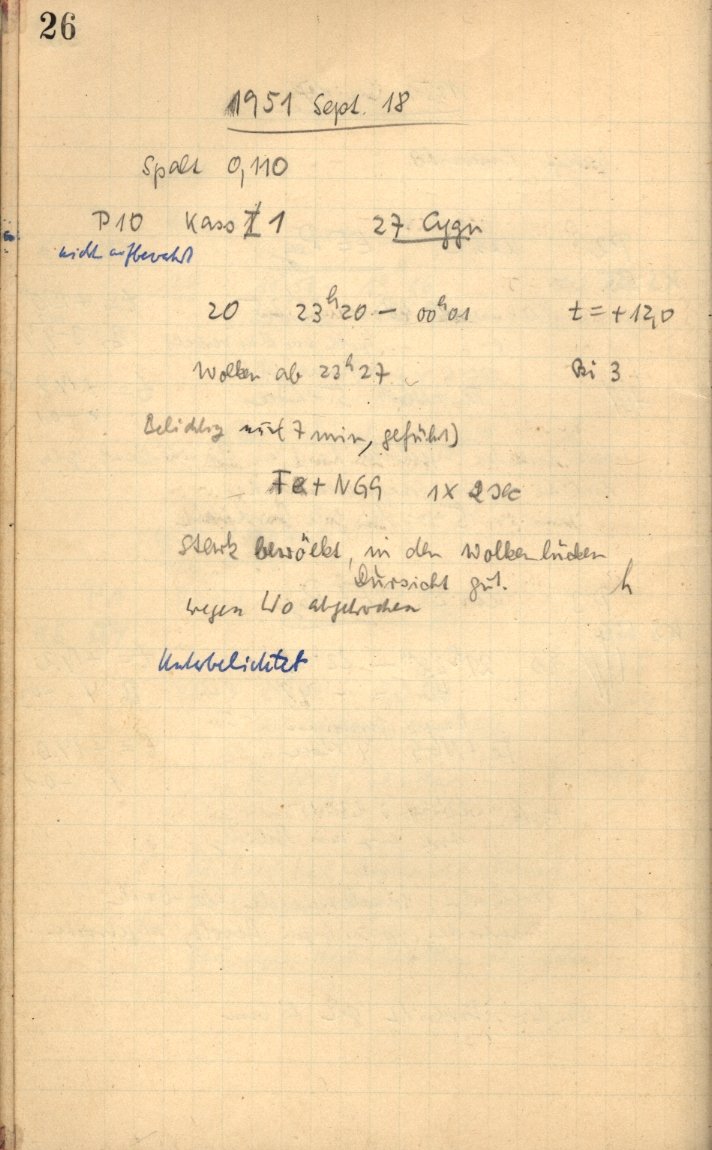 26
1951 Sept. 18
Spalt 0,110
P10 Kaso I 1 27 Cygn
nicht aufbewahrt
20 23h20 – 00h01 t = +12,0
Wolken ab 23h27 Bi 3
Belichtg nur (7 min, geführt)
Fe + NGG 1 x 2 sec
Stark bewölkt, in den Wolkenlücken
Dursicht gut. h
wegen Wo abgebrochen
Unterbelichtet